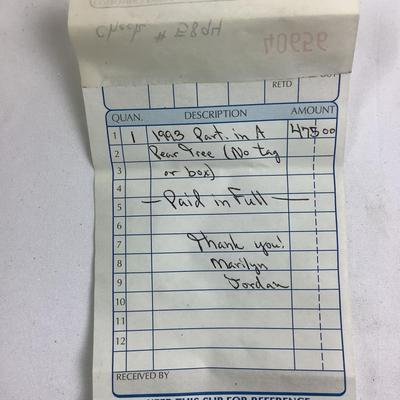 Check # 5894
95690
RETD
QUAN. DESCRIPTION AMOUNT
1 1 1993 Part. in A 475 00
2 Pear Tree (No tag
3 or box)
4
5 — Paid in Full —
6
7 Thank you!
8 Marilyn
9 Jordan
10
11
12
RECEIVED BY
KEEP THIS SLIP FOR REFERENCE